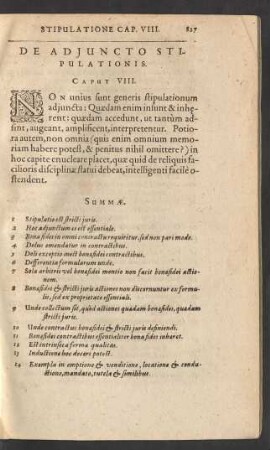 STIPULATIONE CAP. VIII. 827
DE ADJUNCTO STI-
PULATIONIS.
CAPUT VIII.
NON unius sunt generis stipulationum
adjuncta: Quædam enim insunt & inhę-
rent: quædam accedunt, ut tantùm ad-
sint, augeant, amplificent, interpretentur. Potio-
ra autem, non omnia (quis enim omnium memo-
riam habere potest, & penitus nihil omittere?) in
hoc capite enucleare placet, quæ quid de reliquis fa-
cilioris disciplinæ statui debeat, intelligenti facilè o-
stendent.
SUMMÆ.
1 Stipulatio est stricti juris.
2 Hoc adjunctum ei est essentiale.
3 Bona fides in omni contractu requiritur, sed non pari modo.
4 Dolus emendatur in contractibus.
5 Doli exceptio inest bonæ fidei contractibus.
6 Differentia formularum unde.
7 Sola arbitrii vel bonæ fidei mentio non facit bonæ fidei actio-
nem.
8 Bonæ fidei & stricti juris actiones non discernuntur ex formu-
lis, sed ex proprietate essentiali.
9 Unde collectum sit, quòd actiones quædam bonæ fidei, quædam
stricti juris.
10 Unde contractus bonæ fidei & stricti juris definiendi.
11 Bonæ fidei contractibus essentialiter bona fides inhæret.
12 Est intrinseca forma qualitas.
13 Inductione hoc doceri potest.
14 Exempla in emptione & venditione, locatione & condu-
ctione, mandato, tutela & similibus.